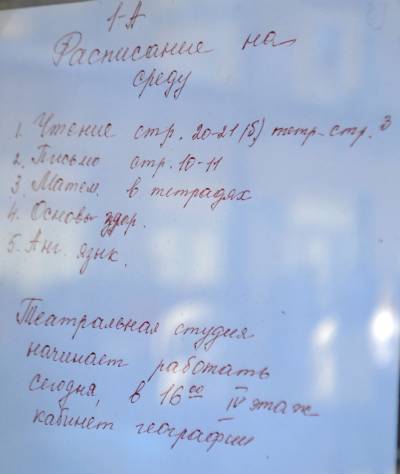 1-А
Расписание на
среду
1. Чтение стр. 20-21 (б) тетр-стр. 3
2. Письмо стр. 10-11
3. Матем. в тетрадях
4. Основы здор.
5. Анг. язык.
Театральная студия
начинает работать
сегодня, в 16⁰⁰ IV этаж
кабинет географии